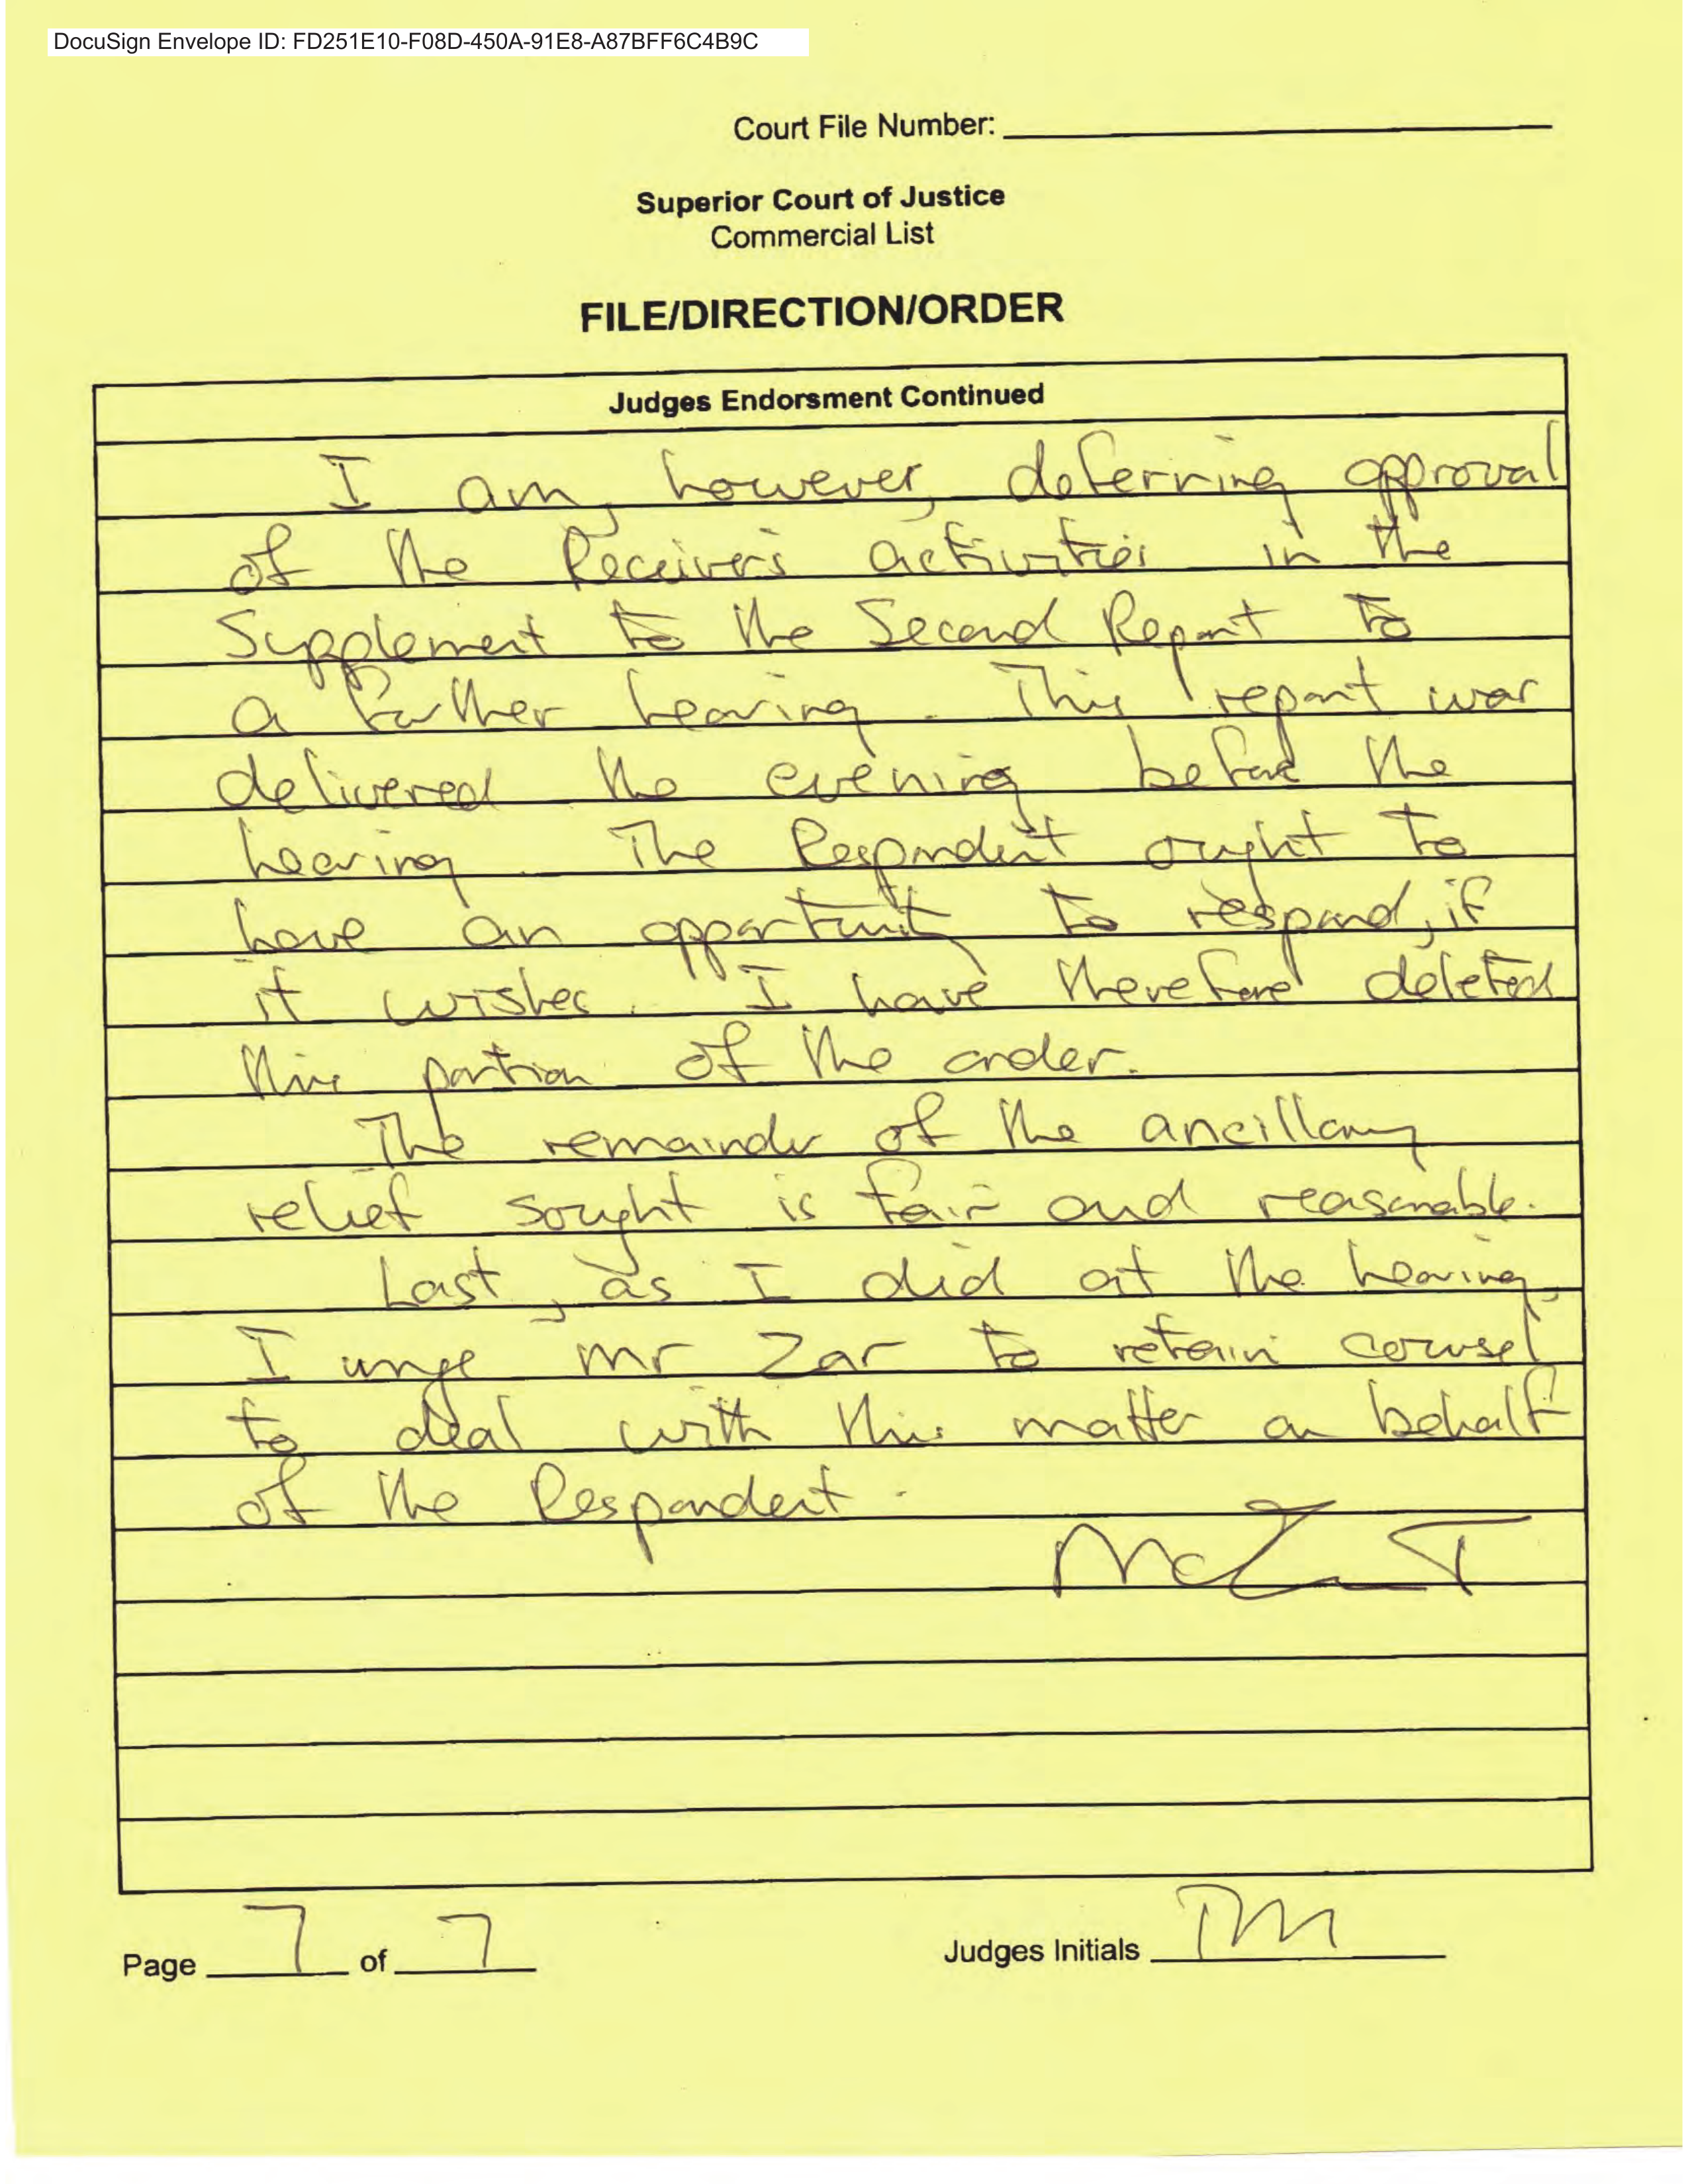 DocuSign Envelope ID: FD251E10-F08D-450A-91E8-A87BFF6C4B9C
Court File Number:
Superior Court of Justice
Commercial List
FILE/DIRECTION/ORDER
Judges Endorsment Continued
I am, however, deferring approval
of the Receiver's activities in the
Supplement to the Second Report to
a further hearing. This report was
delivered the evening before the
hearing. The Respondent ought to
have an opportunity to respond, if
it wishes. I have therefore deleted
this portion of the order.
The remainder of the ancillary
relief sought is fair and reasonable.
Last, as I did at the hearing,
I urge Mr Zar to retain counsel
to deal with this matter on behalf
of the Respondent.
Page 7 of 7
Judges Initials